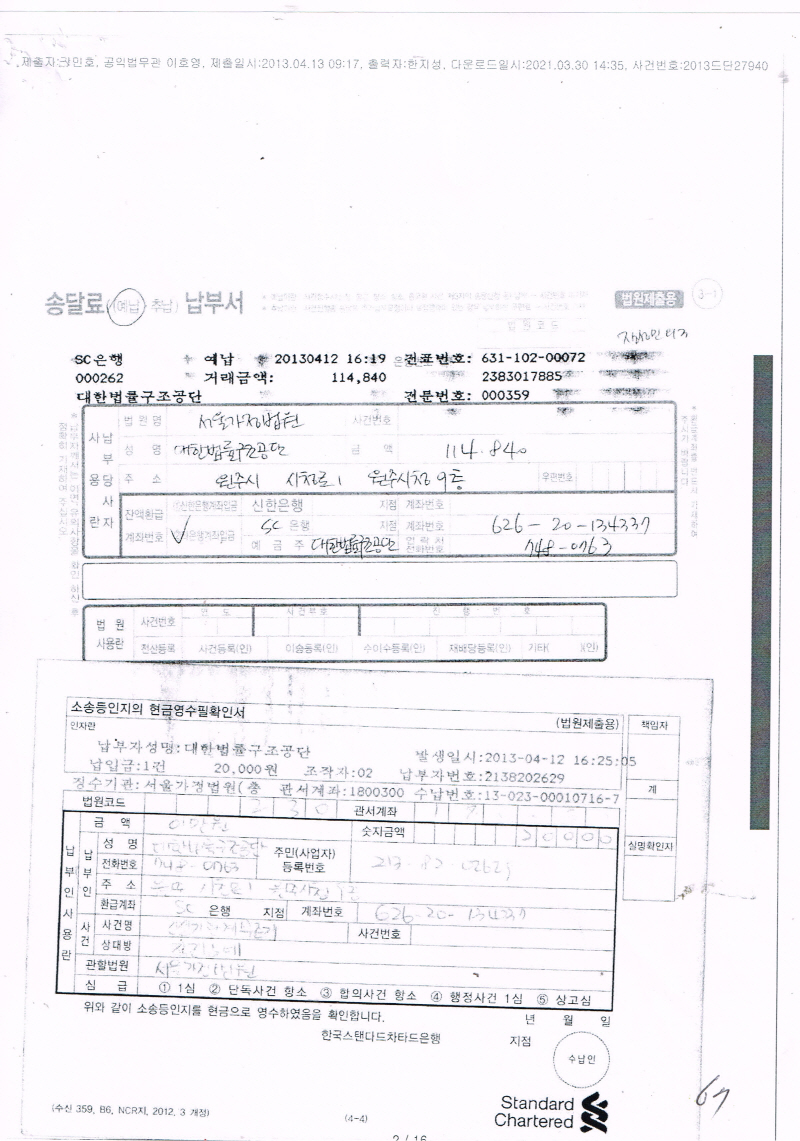 제출자:라인호, 공익법무관 이호영, 제출일시:2013.04.13 09:17, 출력자:한지성, 다운로드일시:2021.03.30 14:35, 사건번호:2013드단27940
송달료 (예납) 추납) 납부서
법원제출용
3-1
법원코드
SC은행 예납 20130412 16:19 전표번호: 631-102-00072
000262 거래금액: 114,840 2383017885
대한법률구조공단 전문번호: 000359
납부당사자 사용란
법원명 서울가정법원 사건번호
성명 대한법률구조공단 금액 114.840
주소 원주시 시청로 1 원주시청 9층 우편번호
잔액환급 계좌번호
신한은행계좌입금 신한은행 지점 계좌번호
은행계좌입금 SC 은행 지점 계좌번호 626-20-134337
예금주 대한법률구조공단 연락서 전화번호 748-0763
법원 사용란
사건번호 년도 사건부호 진행번호
전산등록 사건등록(인) 이송등록(인) 수이수등록(인) 재배당등록(인) 기타( )(인)
소송등인지의 현금영수필확인서
(법원제출용)
인자란
책임자
납부자성명:대한법률구조공단 발생일시:2013-04-12 16:25:05
납입금:1건 20,000원 조작자:02 납부자번호:2138202629
징수기관:서울가정법원(총 관서계좌:1800300 수납번호:13-023-00010716-7
계
법원코드 230 관서계좌
금액 이만원 숫자금액 20000
실명확인자
납부인사용란
납부인
성명 대한법률구조공단 주민(사업자)등록번호
전화번호 748-0763
주소
환급계좌 SC 은행 지점 계좌번호 626-20-134337
사건
사건명 사건번호
상대방
관할법원 서울가정법원
심급 ① 1심 ② 단독사건 항소 ③ 합의사건 항소 ④ 행정사건 1심 ⑤ 상고심
위와 같이 소송등인지를 현금으로 영수하였음을 확인합니다.
년 월 일
한국스탠다드차타드은행 지점
수납인
Standard
Chartered
67
(수신 359, B6, NCR지, 2012. 3 개정)
(4-4)
2 / 16